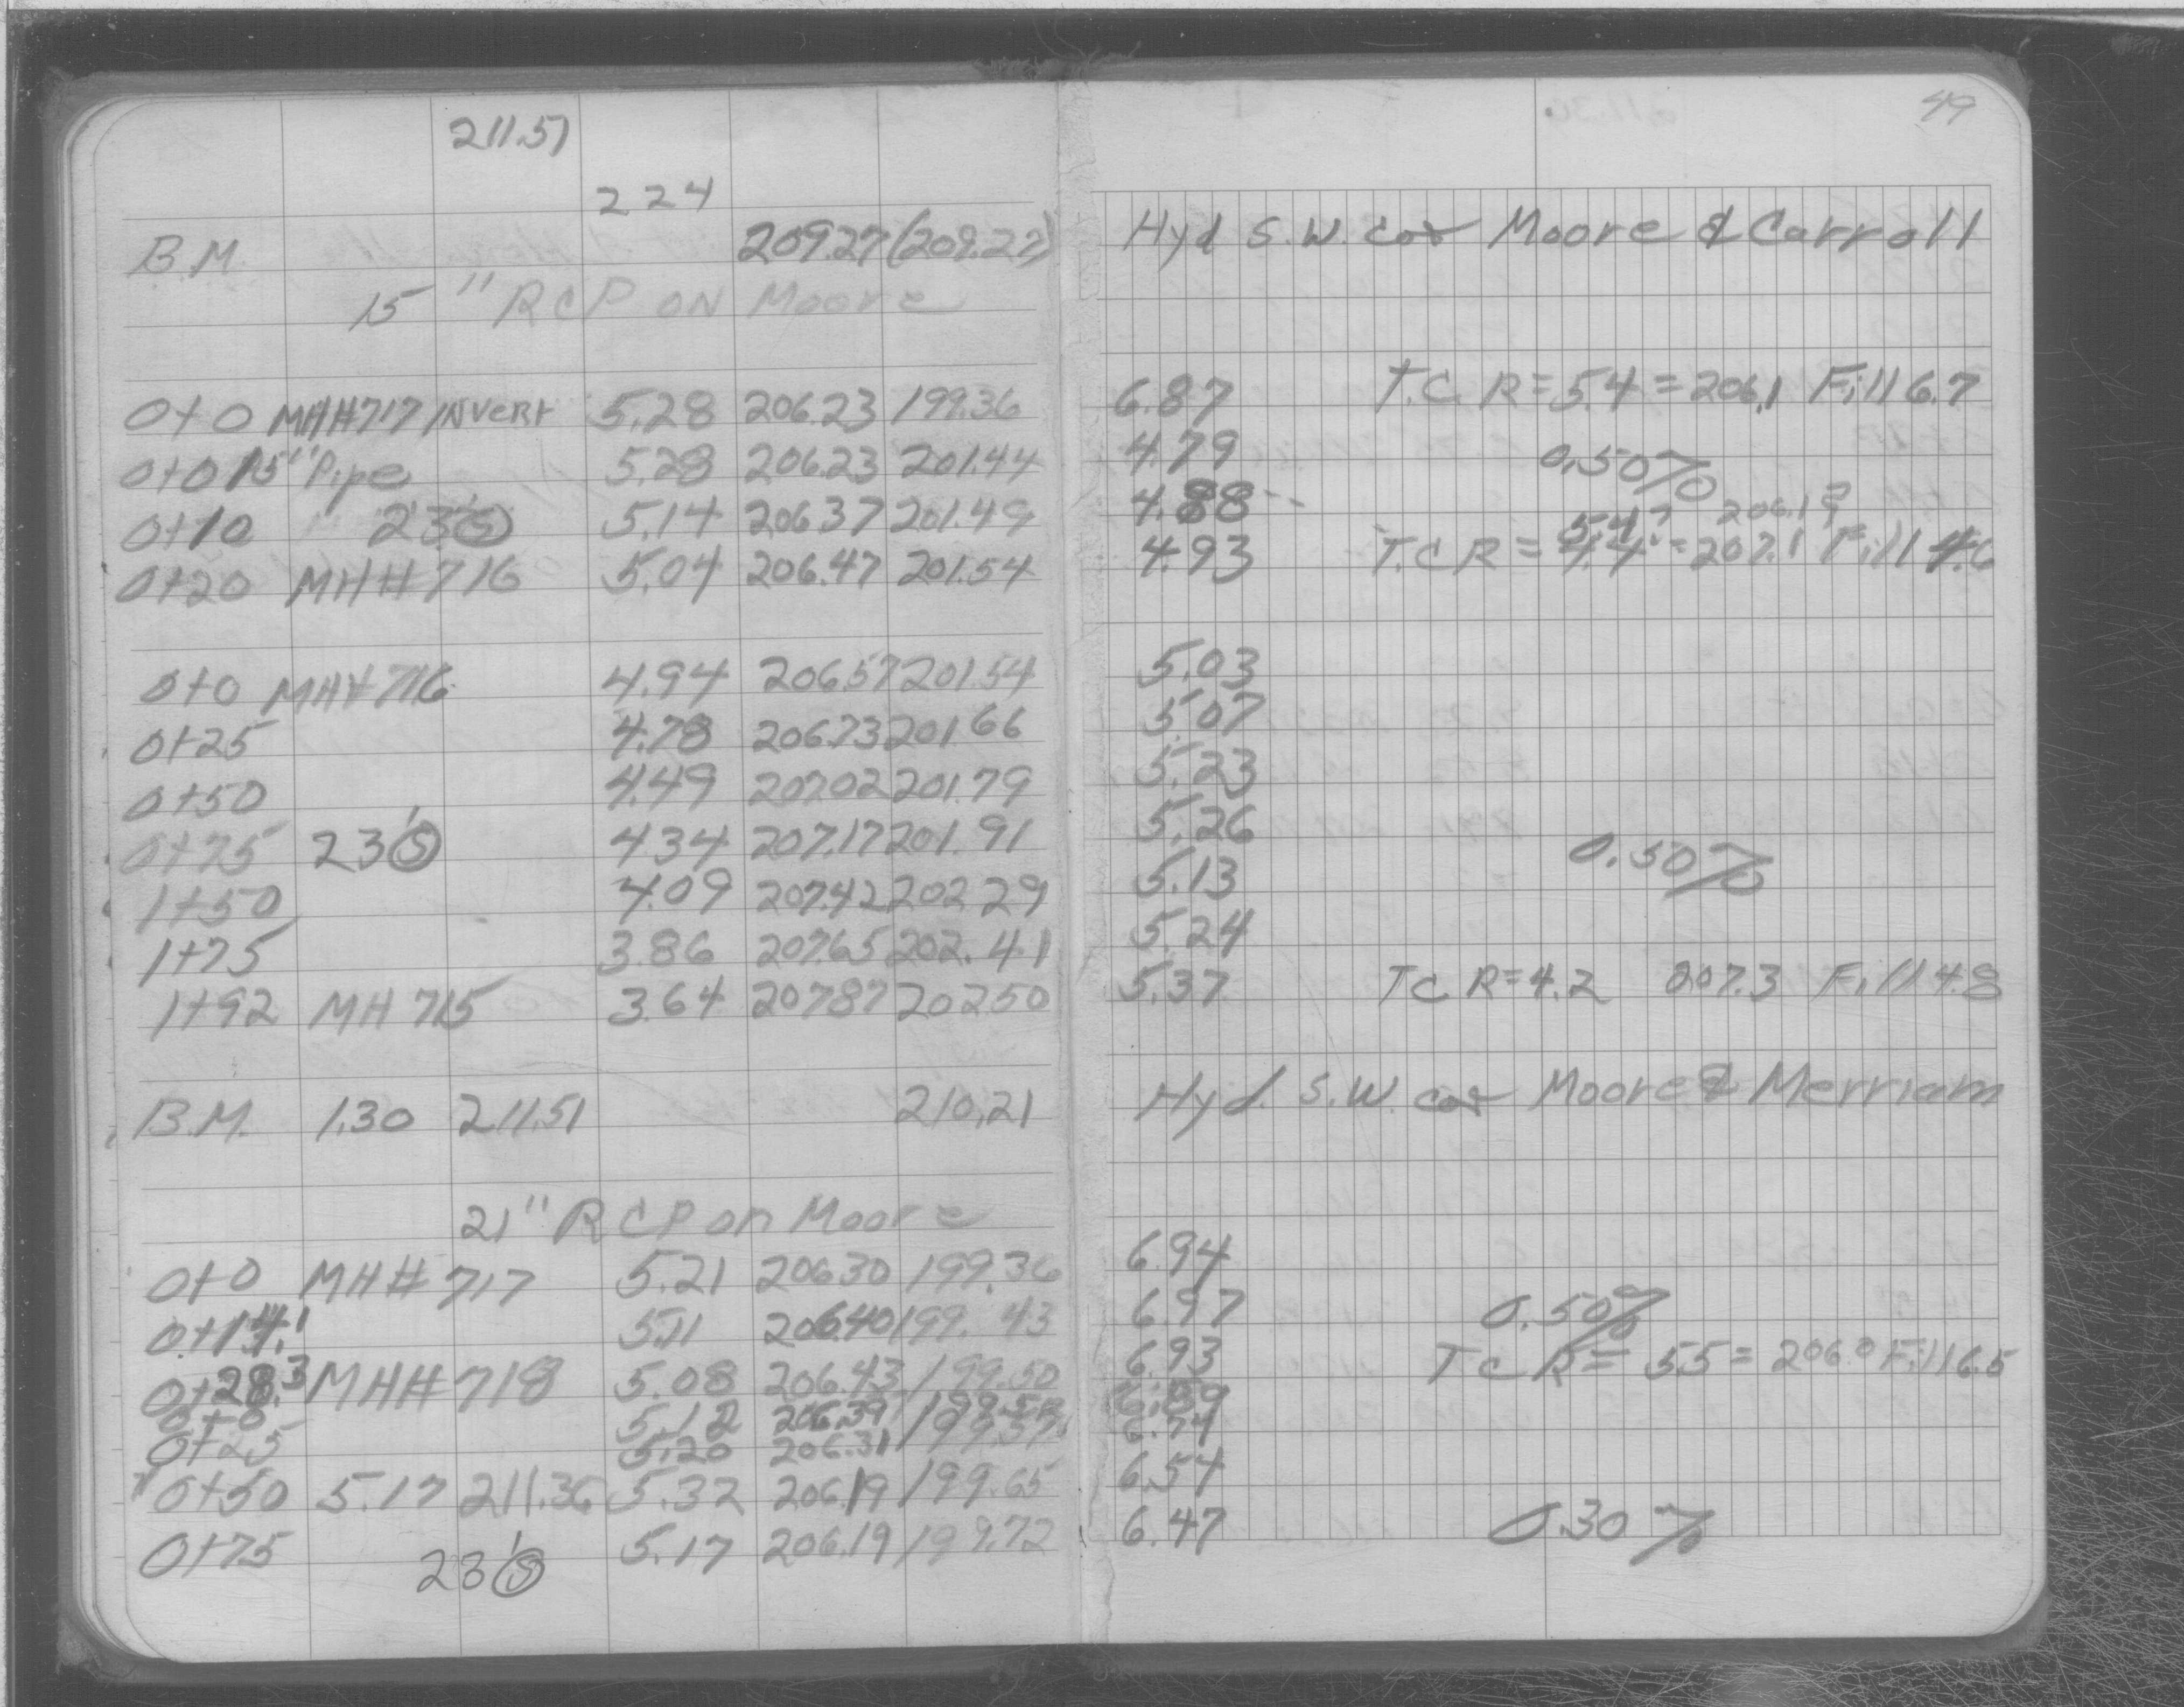 49
211.51
224
B.M. 209.27 (209.27) Hyd S.W. cor Moore & Carroll
15" RCP ON Moore
0+0 MH#717 INVERT 5.28 206.23 199.36 6.87 T.C. R=5.4=206.1 Fill 6.7
0+0 15" Pipe 5.28 206.23 201.44 4.79 0.50%
0+10 " 23'(S) 5.14 206.37 201.49 4.88
5.4? 206.1?
0+20 MH#716 5.04 206.47 201.54 4.93 T.C R=4.4=207.1 Fill 4.6
0+0 MH#716 4.94 206.57 201.54 5.03
0+25 4.78 206.73 201.66 5.07
0+50 4.49 207.02 201.79 5.23
0+75 23'(S) 4.34 207.17 201.91 5.26 0.50%
1+50 4.09 207.42 202.29 5.13
1+75 3.86 207.65 202.41 5.24
1+92 MH 715 3.64 207.87 202.50 5.37 TC R=4.2 207.3 Fill 4.8
B.M. 1.30 211.51 210.21 Hyd. S.W. cor Moore & Merriam
21" RCP on Moore
0+0 MH# 717 5.21 206.30 199.36 6.94
0+14.1 5.11 206.40 199.43 6.97 0.50%
0+28.3 MH#718 5.08 206.43 199.50 6.93 TC R= 5.5=206.0 Fill 6.5
0+0 5.12 206.39 199.50 6.89
0+25 5.20 206.31 199.57 6.74
0+50 5.17 211.36 5.32 206.19 199.65 6.54
0+75 23'(S) 5.17 206.19 199.72 6.47 0.30%